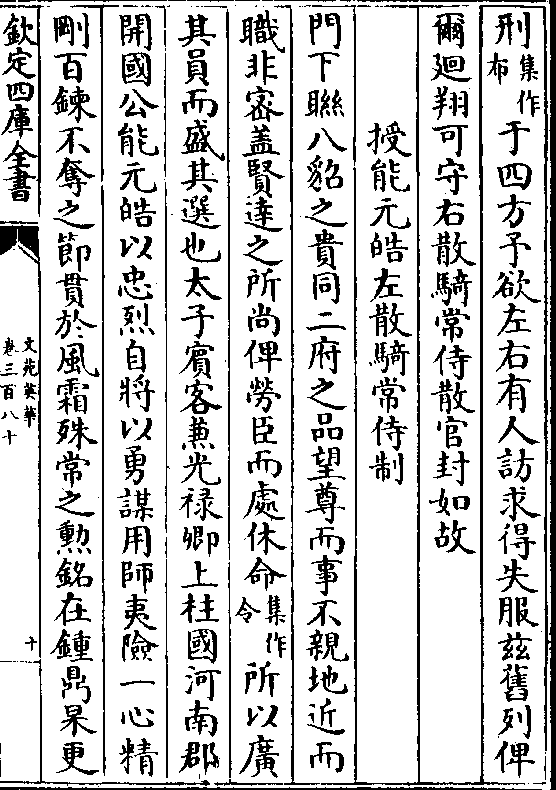 刑集作布于四方予欲左右有人訪求得失服兹舊列俾
爾廻翔可守右散騎常侍散官封如故
授能元皓左散騎常侍制
門下聯八貂之貴同二府之品望尊而事不親地近而
職非密盖賢達之所尚俾勞臣而處休命集作令所以廣
其員而盛其選也太子賓客兼光禄卿上柱國河南郡
開國公能元皓以忠烈自將以勇謀用師夷險一心精
剛百鍊不奪之節貫於風霜殊常之勲銘在鍾鼎杲更
欽定四庫全書
文苑英華
卷三百八十
十